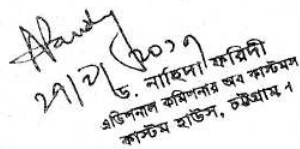 ড. নাহিদা ফরিদী
এডিশনাল কমিশনার অব কাস্টমস
কাস্টম হাউস, চট্টগ্রাম।